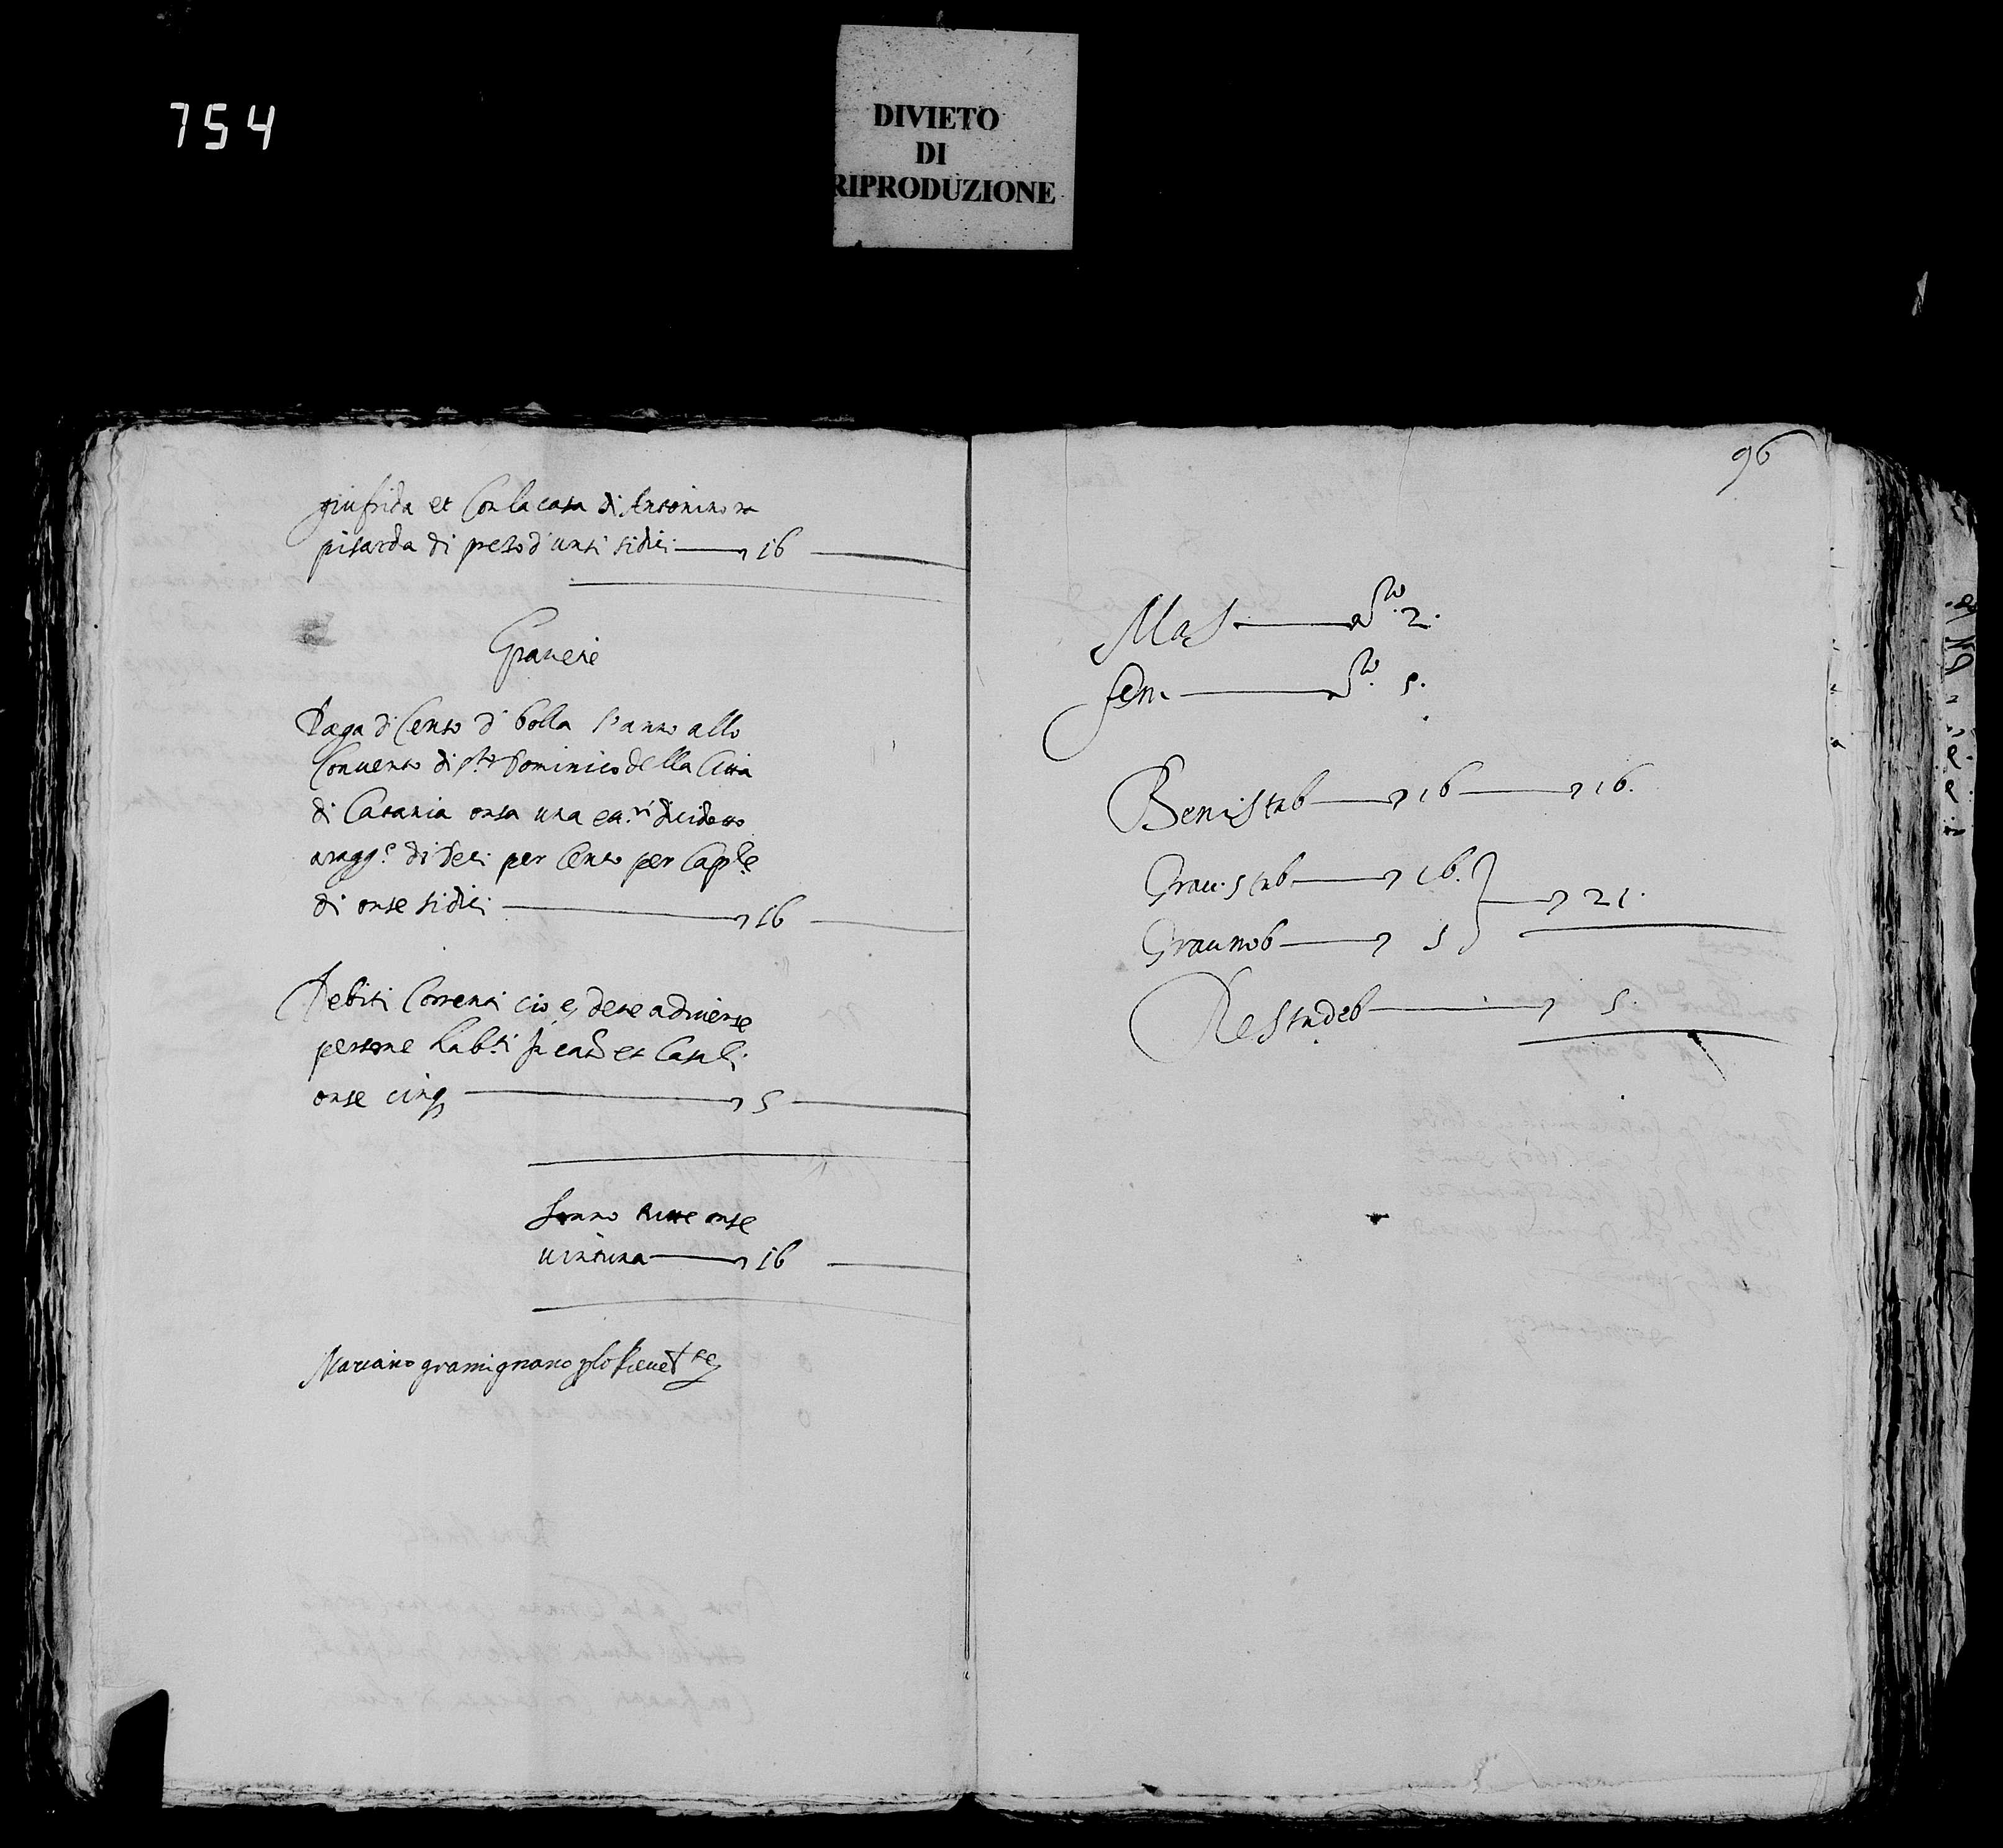 754
DIVIETO
DI
RIPRODUZIONE
giufrida et Con la casa di Antonino ra
pisarda di prezo d'unsi sidici 16
Gravezze
Paga di Censo di bolla l'anno allo
Convento di s.to Dominico della Citta
di Catania onsa una e
a ragg.e di deci per Cento per Cap.le
di onse sidici 16
Debiti Correnti cio e deve a diverse
persone hab.ti et Casali
onse cinq 5
Sonno tutte onse
vintuna 16
Mariano gramignano
96
Mas n.ro 2.
fem. n.ro 5.
Beni stab 16 16.
Grau. stab 16. 21.
Grau mob 5
Resta deb 5.